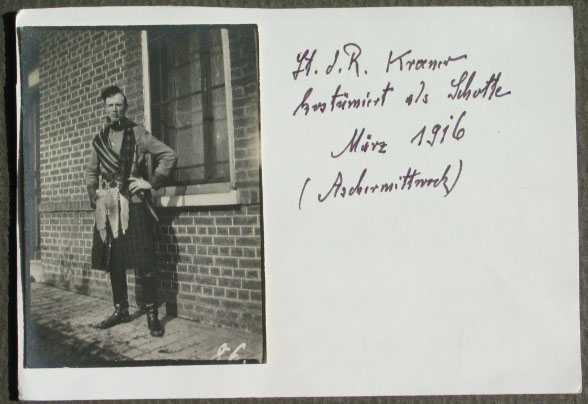 Lt. d. R. Kramer
kostümiert als Schotte
März 1916
(Aschermittwoch)
86